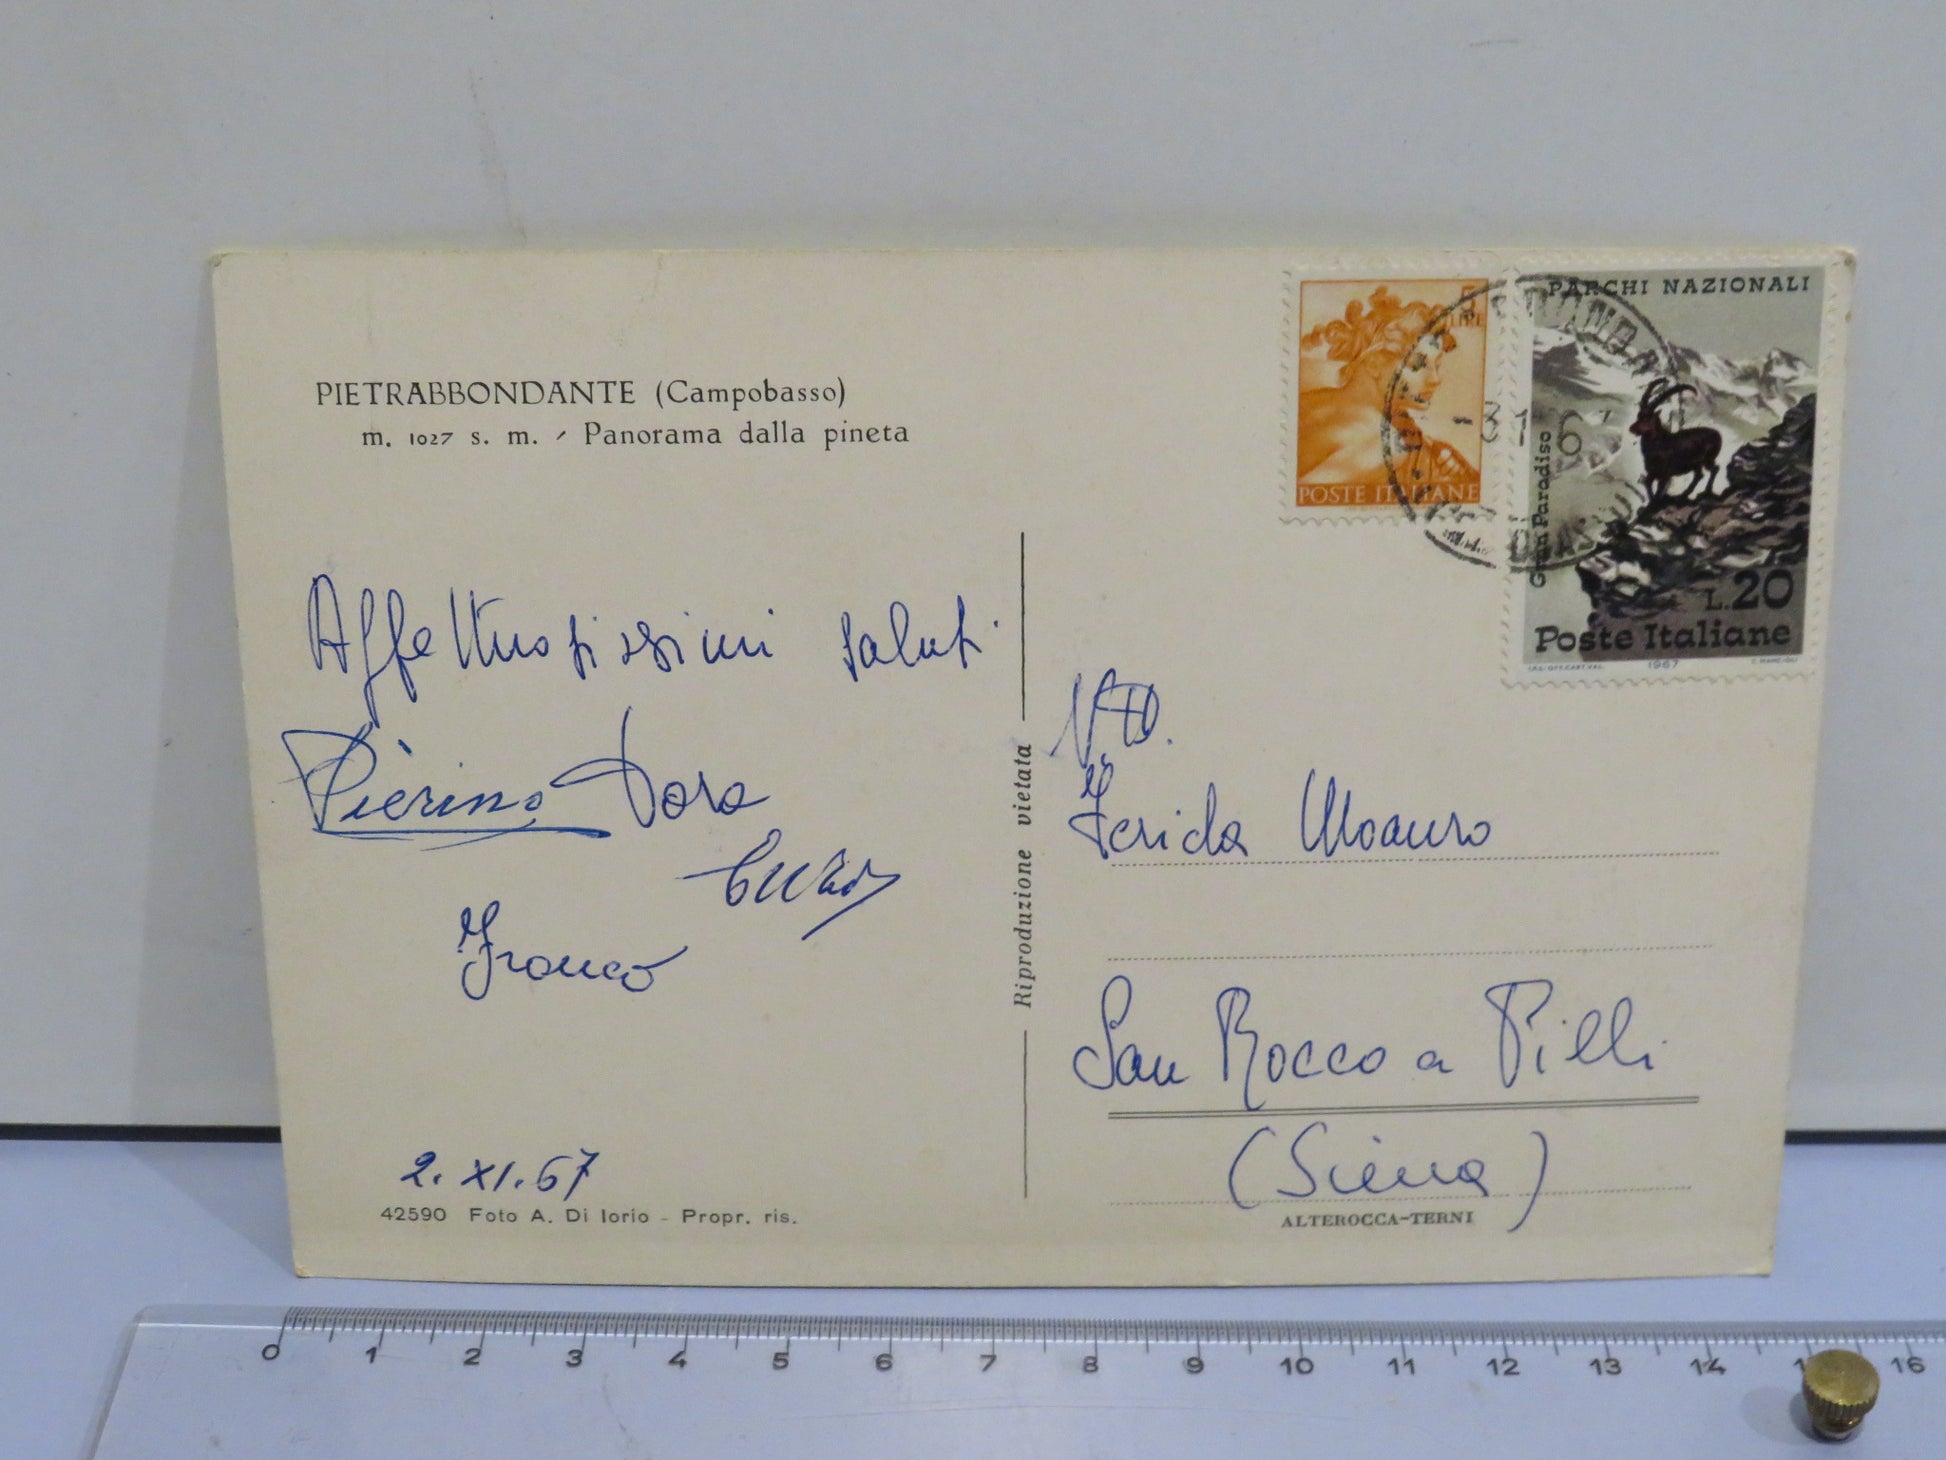 PIETRABBONDANTE (Campobasso)
m. 1027 s. m. - Panorama dalla pineta
Affettuosissimi saluti
Pierino Dora
Franco
2. XI. 67
42590 Foto A. Di Iorio - Propr. ris.
Riproduzione vietata
5
LIRE
POSTE ITALIANE
PARCHI NAZIONALI
Gran Paradiso
L.20
Poste Italiane
I.P.S.-OFF.CART.VAL. 1967
Ferida Moauro
San Rocco a Pilli
(Siena)
ALTEROCCA-TERNI
0 1 2 3 4 5 6 7 8 9 10 11 12 13 14 15 16